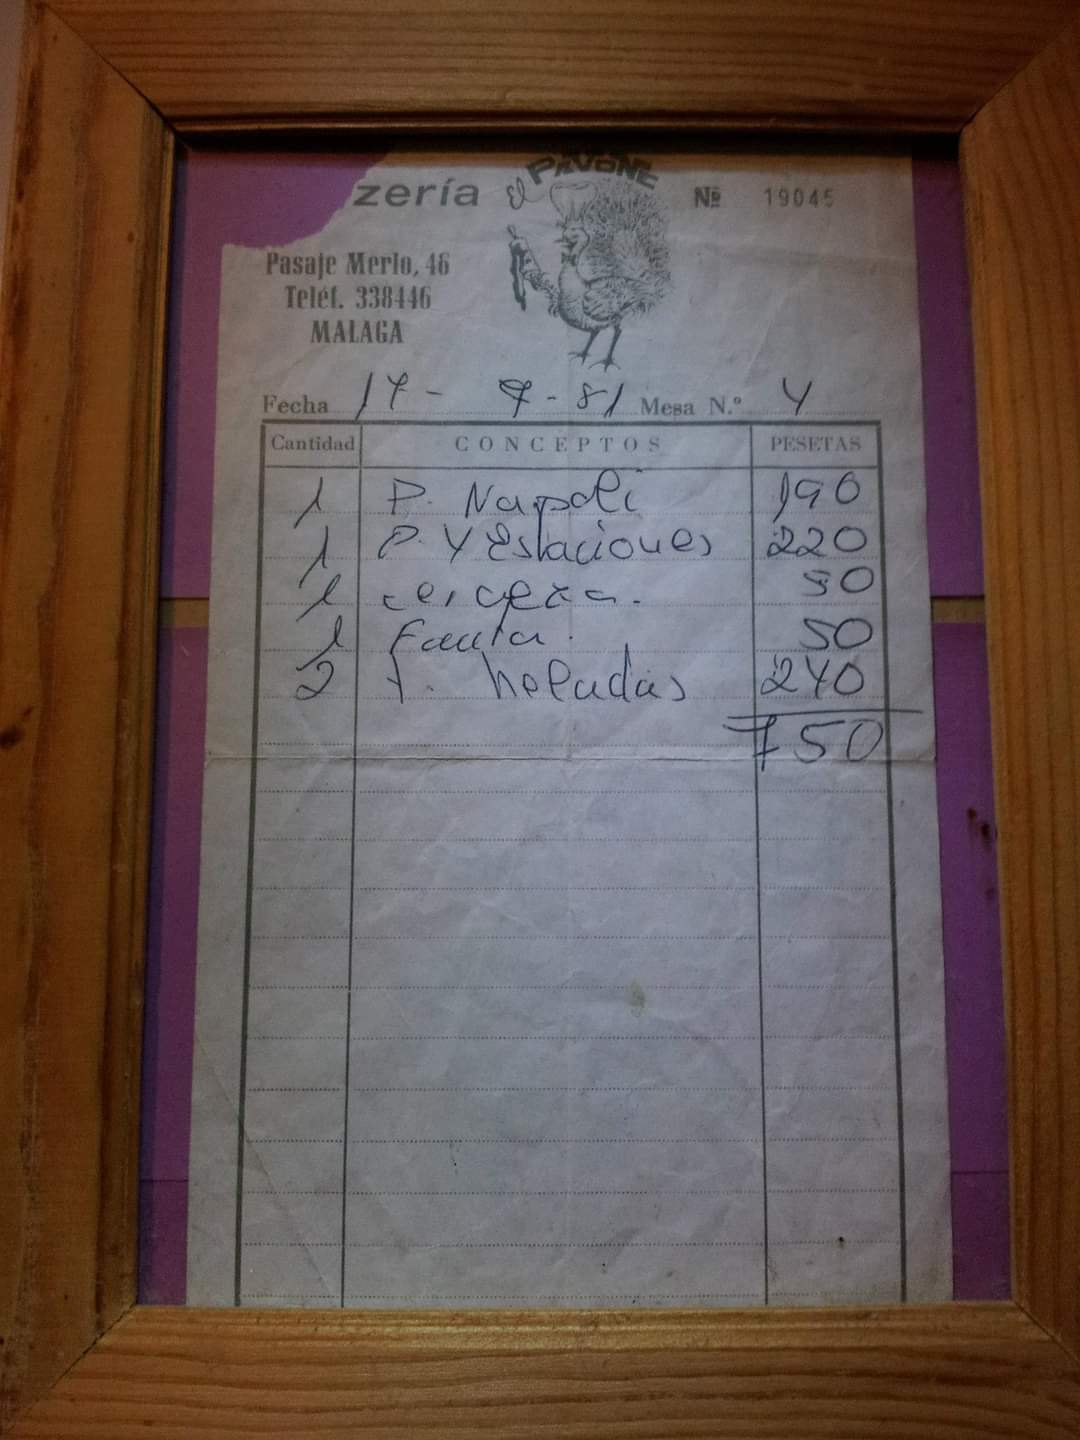 zería El PAVONE Nº 19045
Pasaje Merlo, 46
Teléf. 338446
MALAGA
Fecha 17 - 7 - 81 Mesa N.º 4
Cantidad CONCEPTOS PESETAS
1 P. Napoli 190
1 P. 4 Estaciones 220
1 cerveza. 50
1 Fanta. 50
2 T. heladas 240
750